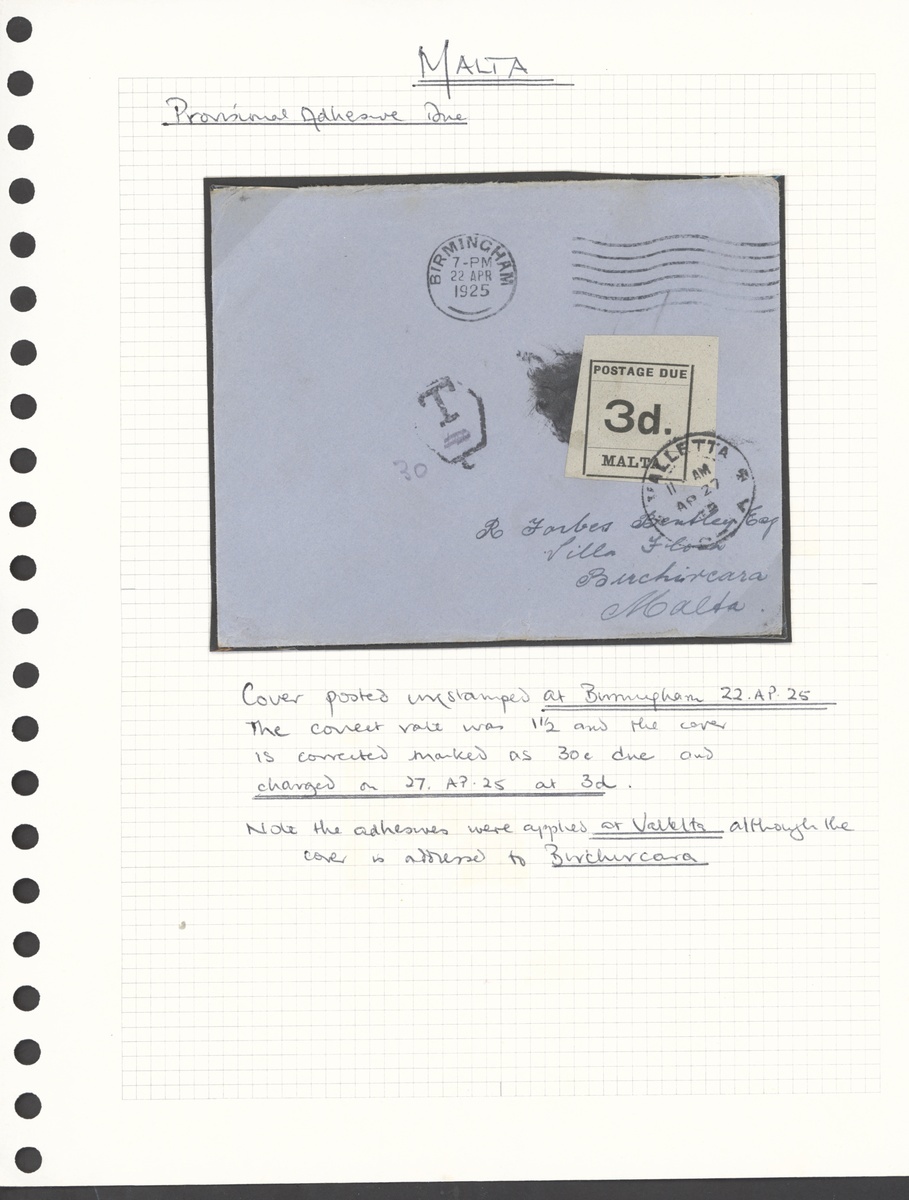 MALTA
Provisional Adhesive Due
BIRMINGHAM
7-PM
22 APR
1925
POSTAGE DUE
3d.
MALTA
T
30
VALLETTA
11 AM
AP 27
R Forbes Bentley Esq
Villa
Birchircara
Malta.
Cover posted unstamped at Birmingham 22.AP.25
The correct rate was 1½ and the cover
is corrected marked as 30c due and
charged on 27. AP.25 at 3d.
Note the adhesives were applied at Valletta although the
cover is addressed to Birchircara